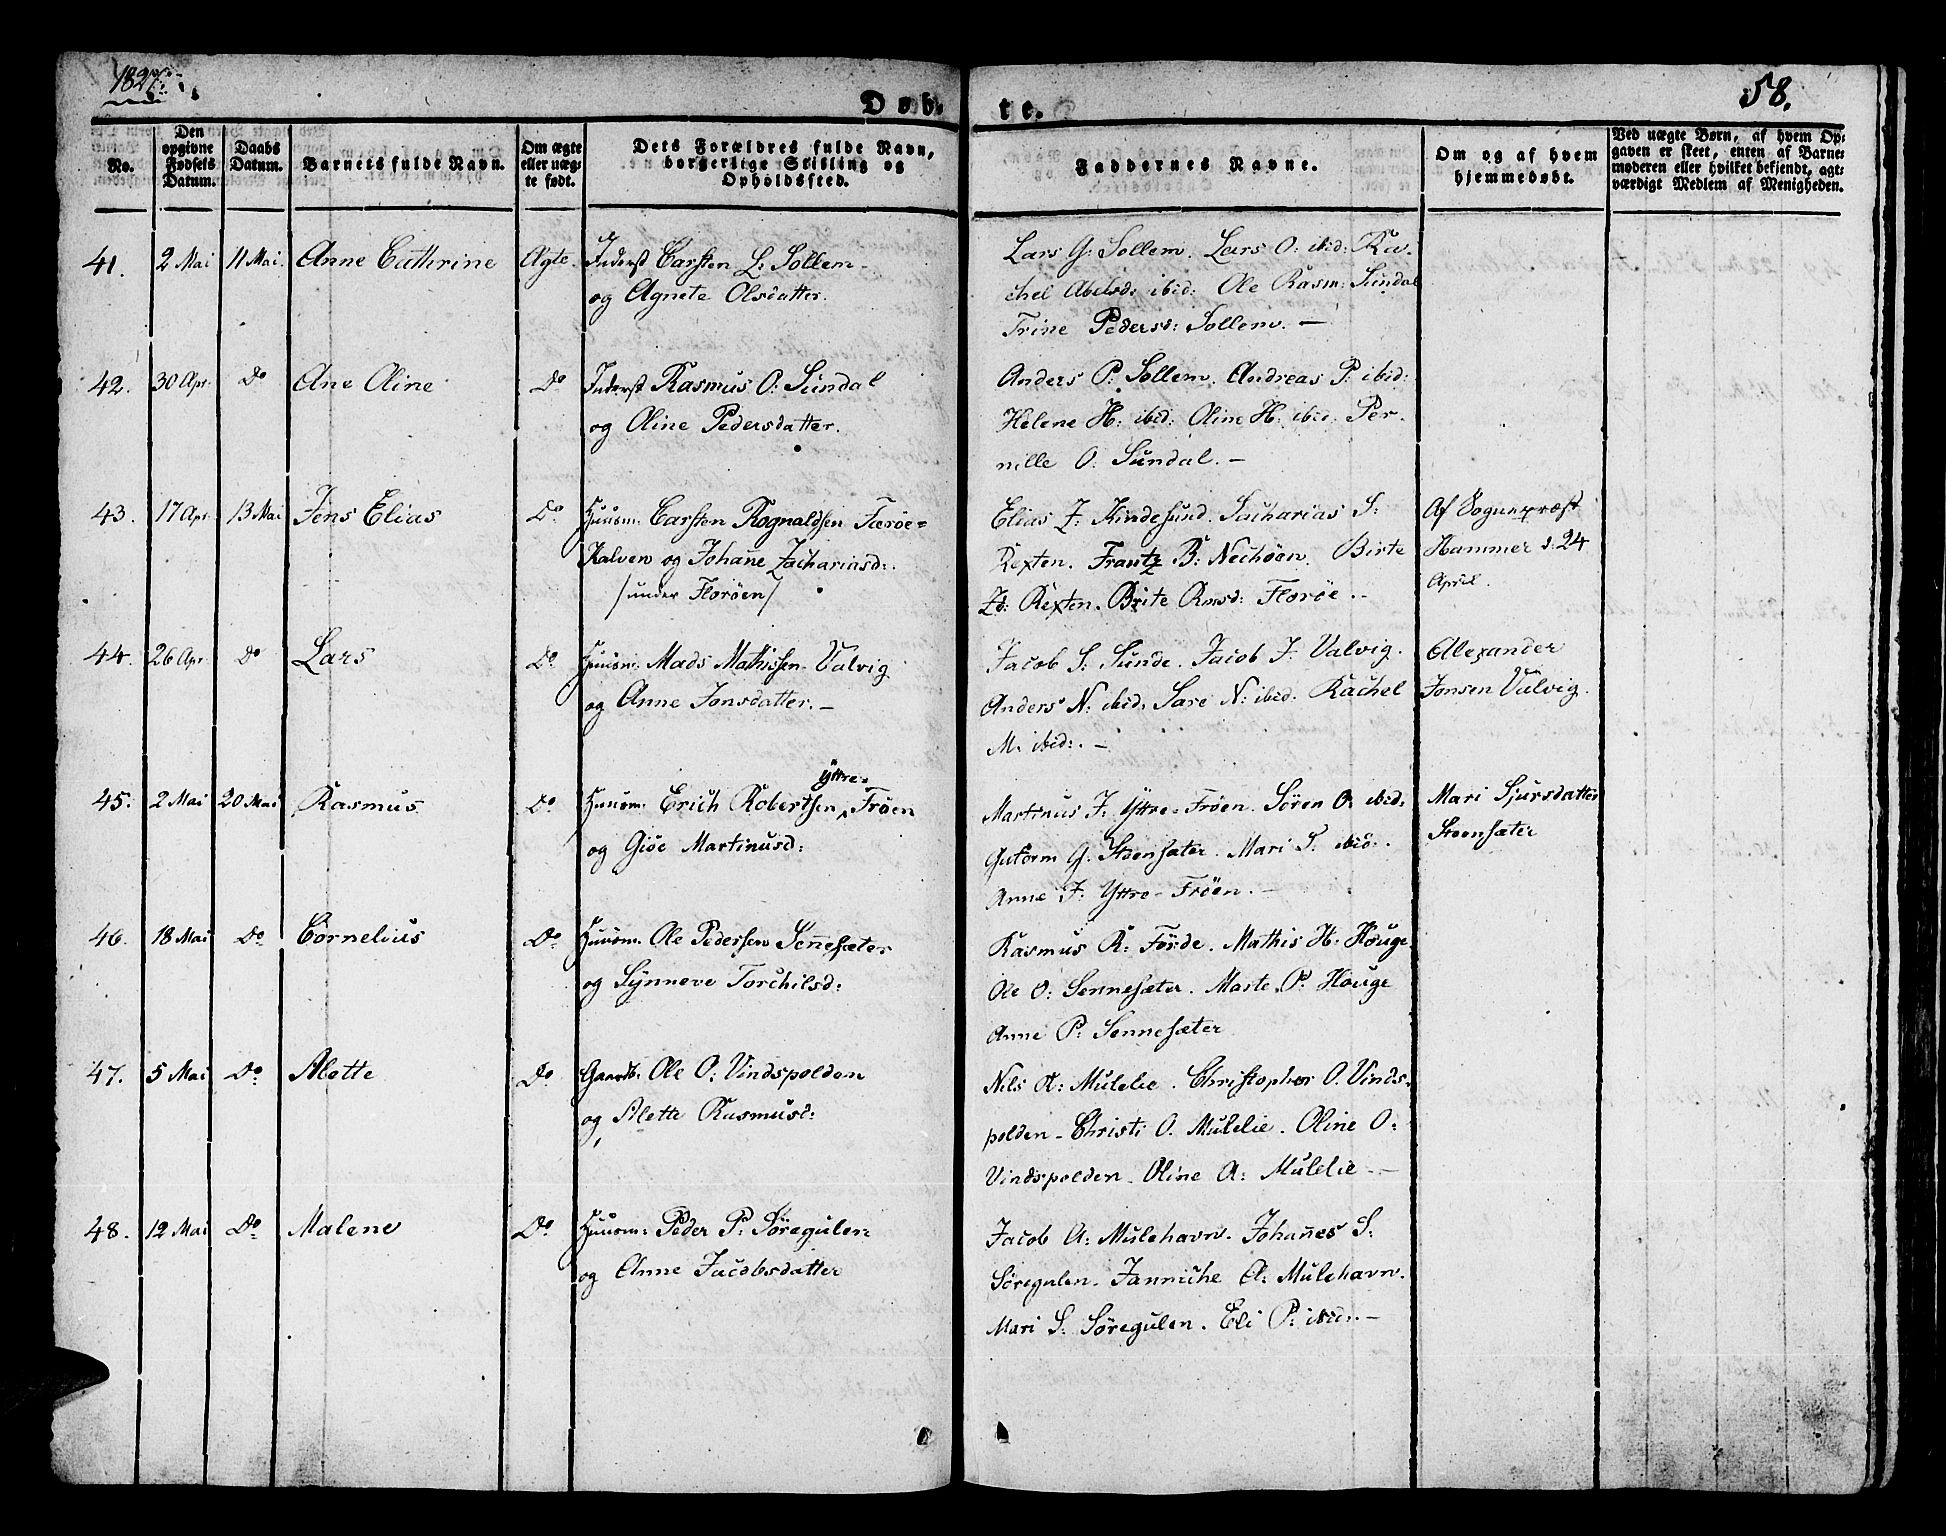 1827.
58.
Døb-
te.
No.
Den opgivne Fødsels Datum.
Daabs Datum.
Barnets fulde Navn.
Om ægte eller uægte født.
Dets Forældres fulde Navn, borgerlige Stilling og Opholdssted.
Faddernes Navne.
Om og af hvem hjemmedøbt.
Ved uægte Børn, af hvem Opgaven er skeet, enten af Barnemoderen eller hvilket bekjendt, agtværdigt Medlem af Menigheden.
41. 2 Mai 11 Mai. Anne Cathrine Ægte. Inderst Carsten L: Sollem
og Agnete Olsdatter.
Lars G: Sollem. Lars O: ibid: Ra-
chel Abelsd: ibid: Ole Rasm: Sundal
Trine Pedersd: Sollem. —
42. 30 Apr. Do Ane Oline Do Inderst Rasmus O: Sundal
og Oline Pedersdatter.
Anders P: Sollem. Andreas P: ibid:
Helene H: ibid: Oline H: ibid: Per-
nille O: Sundal. —
43. 17 Apr. 13 Mai Jens Elias Do Huusm: Carsten Rognaldsen Færøe-
Kalven og Johane Zachariasd:
/under Florøen/
Elias Z: Kindesund. Sacharias S:
Rexten. Frantz B: Nechöen. Birte
Zd: Rexten. Brite Rmsd: Florøe.
Af Sognepræst
Hammer d: 24
April.
44. 26 Apr. Do Lars Do Huusm: Mads Mathissen Valvig
og Anne Jonsdatter. —
Jacob S: Sunde. Jacob J: Valvig.
Anders N: ibid: Sare N: ibid: Rachel
M: ibid:. —
Alexander
Jonsen Valvig.
45. 2 Mai 20 Mai Rasmus Do Huusm: Erich Robertsen Yttre- Frøen
og Giøe Martinusd:
Martinus J: Yttre-Frøen. Sören O: ibid:
Gutorm G: Steensæter. Mari S: ibid:.
Anne J: Yttre-Frøen. —
Mari Sjursdatter
Steensæter
46. 18 Mai Do Cornelius Do Huusm: Ole Pedersen Sennesæter
og Synneve Torchilsd:
Rasmus R: Förde. Mathis H: Houge
Ole O: Sennesæter. Marte P: Houge
Anne P: Sennesæter
47. 5 Mai Do Alette Do Gaardb: Ole O: Vindspolden
og Alette Rasmusd:
Nils A: Mulelie. Christopher O. Vinds-
polden- Christi O. Mulelie. Oline O:
Vindspolden. Oline A: Mulelie —
48. 12 Mai Do Malene Do Huusm: Peder P: Søregulen
og Anne Jacobsdatter
Jacob A: Mulehavn. Johannes S:
Søregulen. Janniche A: Mulehavn.
Mari S: Søregulen. Eli P: ibid:. —